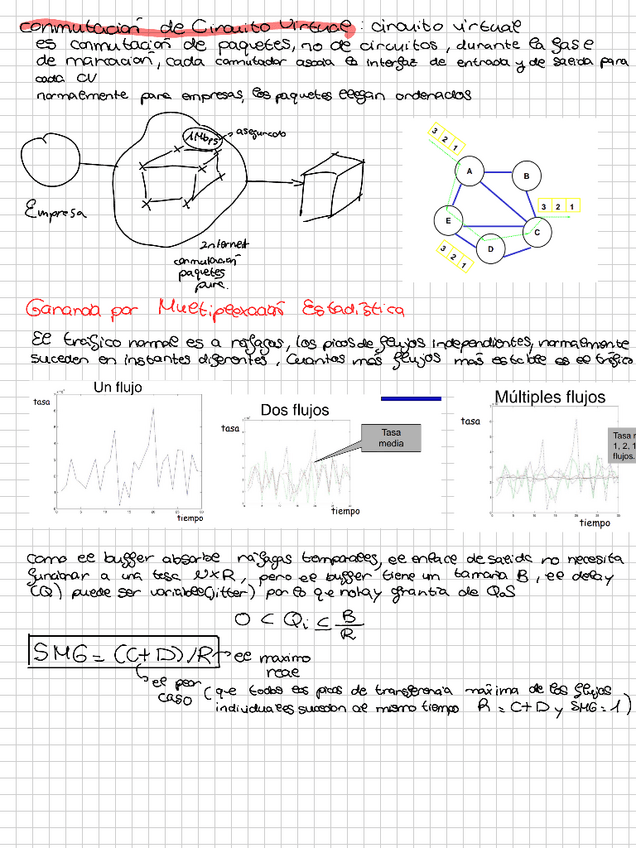 conmutación de Circuito Virtual: circuito virtual
es conmutación de paquetes, no de circuitos, durante la fase
de marcación, cada conmutador asocia la interfaz de entrada y de salida para
cada CV
normalmente para empresas, los paquetes llegan ordenados
1Mbps
asegurado
Empresa
Internet
conmutación
paquetes
pura.
3 2 1
A
B
3 2 1
E
C
D
3 2 1
Ganancia por Multiplexación Estadística
El tráfico normal es a ráfagas, los picos de flujos independientes, normalmente
suceden en instantes diferentes, Cuantos más flujos más estable es el tráfico
Un flujo
tasa
tiempo
Dos flujos
tasa
Tasa
media
tiempo
Múltiples flujos
tasa
Tasa
1, 2, 1
flujos.
tiempo
como el buffer absorbe ráfagas temporales, el enlace de salida no necesita
funcionar a una tasa N×R, pero el buffer tiene un tamaño B, el delay
(Q) puede ser variable (jitter) por lo que no hay grantía de QoS
O < Qi ≤ B/R
SMG = (C+D)/R → el maximo
real
el peor
caso
(que todos los picos de transferencia máxima de los flujos
individuales sucedan al mismo tiempo R = C+D y SMG = 1)